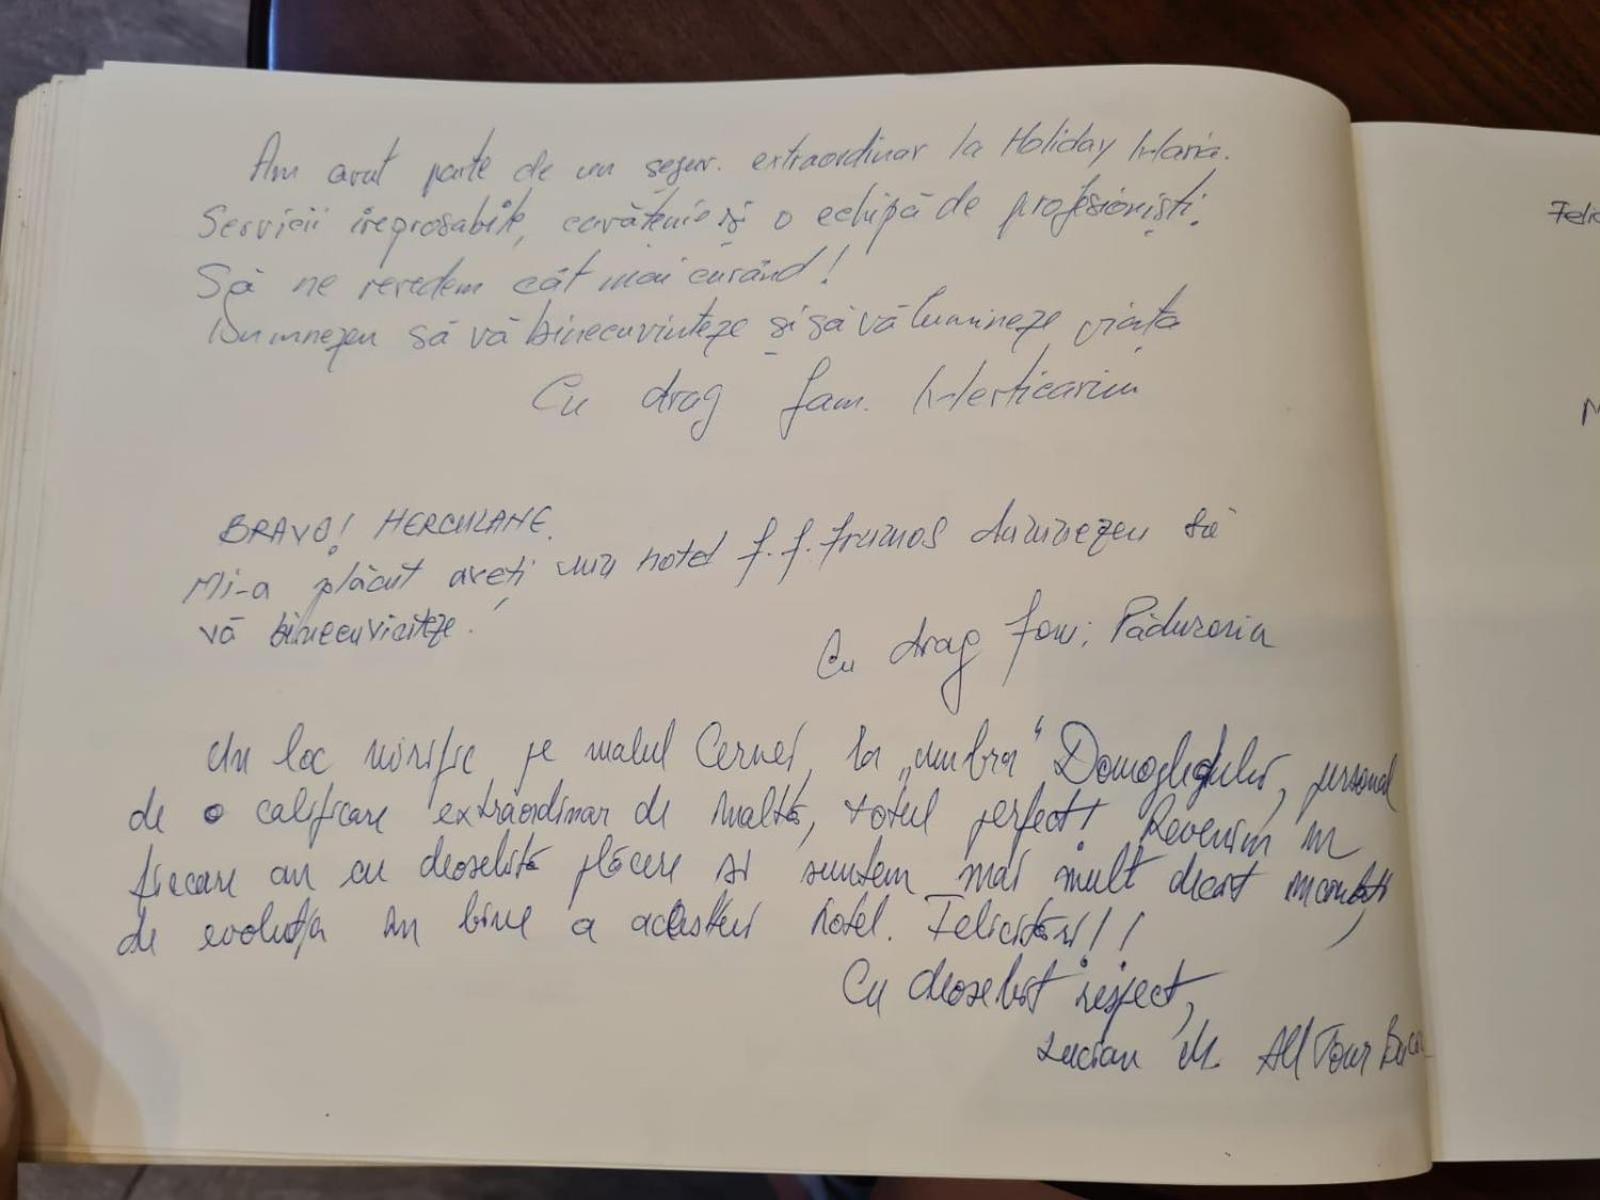 Am avut parte de un sejur. extraordinar la Holiday Maria.
Servicii ireproșabile, curățenie și o echipă de profesioniști.
Să ne revedem cât mai curând!
Dumnezeu să vă binecuvinteze și să vă lumineze viața
Cu drag fam.
BRAVO! HERCULANE.
Mi-a plăcut aveți un hotel f. f. frumos dumnezeu să
vă binecuvinteze!
Cu drag fam; Păduraria
Un loc mirific pe malul Cernei, la „umbra” Domogledului, personal
de o calificare extraordinar de înaltă, totul perfect! Revenim în
fiecare an cu deosebită plăcere si suntem mai mult decât încântați
de evoluția în bine a acestui hotel. Felicitări!!
Cu deosebit respect,
Lucian M. All Tour Buc
Felic